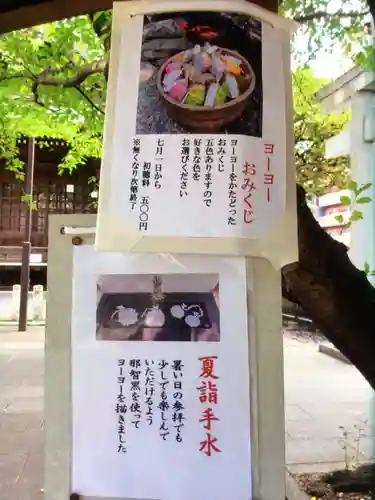 ヨーヨー
おみくじ
ヨーヨーをかたどった
おみくじ
五色ありますので
好きな色を
お選びください
七月一日から
初穂料 五〇〇円
※無くなり次第終了
夏詣手水
暑い日の参拝でも
少しでも楽しんで
いただけるよう
那智黒を使って
ヨーヨーを描きました